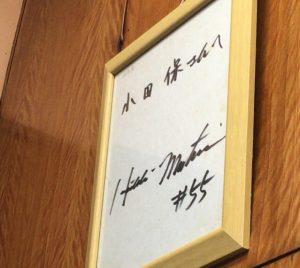 小田 保さんへ
Hideki Matsui
#55